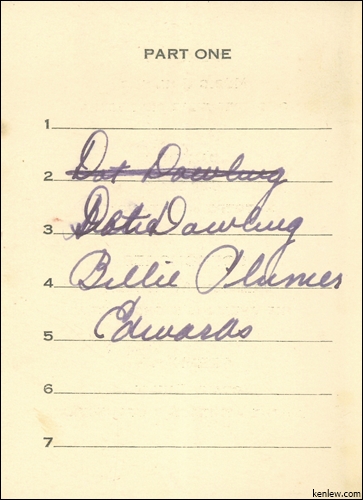 PART ONE
1
2 Dot Dowling
3 Dot Dowling
4 Billie Plumes
5 Edwards
6
7
kenlew.com